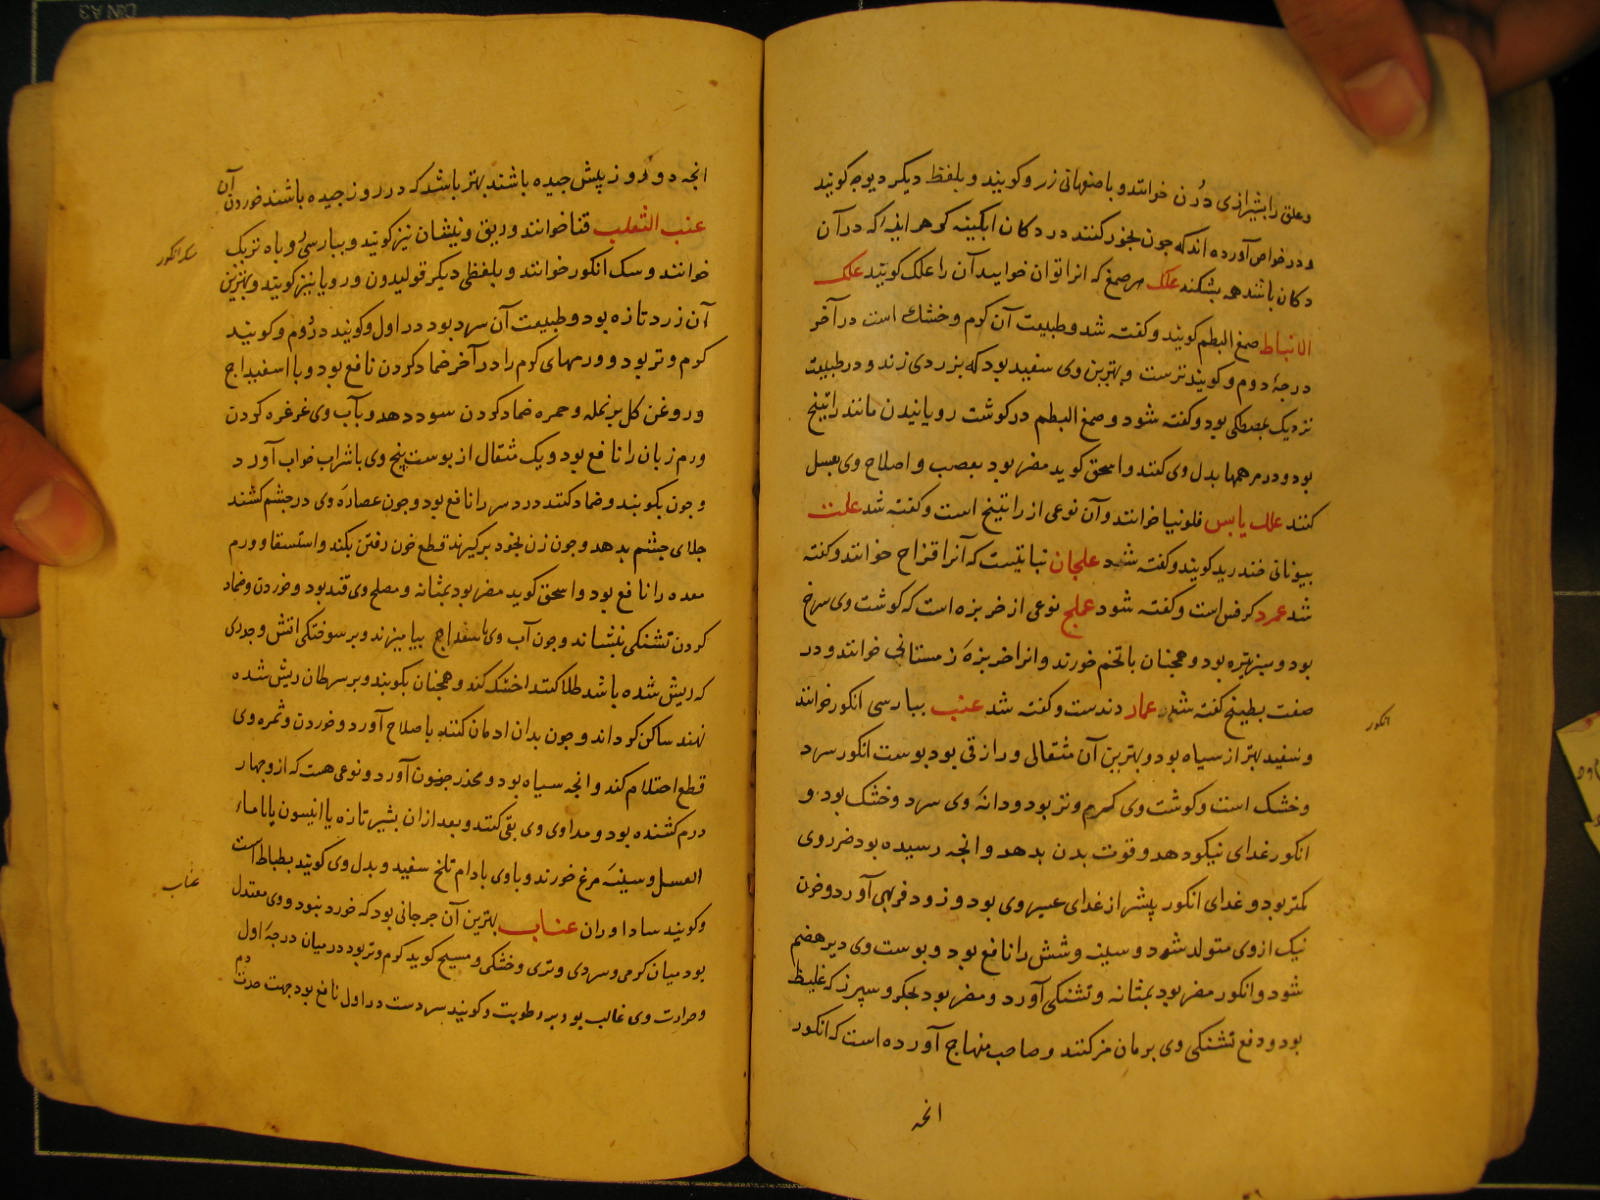 وعلق را بشیرازی درن خوانند و باصفهانی زرو کویند و بلفظ دیکر دیوچه کویند
و در خواص آورده اند که چون بخور کنند در دکان ابکینه کر هر ابکینه که در آن
دکان باشد همه بشکند علک هر صمغ که انرا توان خایید آن را علک کویند علک
الانباط صمغ البطم کویند و کفته شد و طبیعت آن کرم و خشک است در آخر
درجهٔ دوم و کویند ترست و بهترین وی سفید بود که بزردی زند و در طبیعت
نزدیک بمصطکی بود و کفته شود و صمغ البطم در کوشت رویانیدن مانند راتینج
بود و در مرهمها بدل وی کنند و اسحق کوید مضر بود بعصب و اصلاح وی بعسل
کنند علک یابس قلونیا خوانند و آن نوعی از راتینج است و کفته شد علت
بیونانی خندرید کویند و کفته شد علجان نباتیست که آنرا قزاح خوانند و کفته
شد عمرد کرفس است و کفته شود عملج نوعی از خربزه است که کوشت وی سرخ
بود و سبز تیره بود و همچنان باتخم خورند و انرا خربزهٔ زمستانی خوانند و در
صفت بطیخ کفته شود عماد دندست و کفته شد عنب بپارسی انکور خوانند
و سفید بهتر از سیاه بود و بهترین آن مثقالی و رازقی بود پوست انکور سرد
و خشک است و کوشت وی کرم و تر بود و دانهٔ وی سرد و خشک بود و
انکور غذای نیکو دهد و قوت بدن بدهد و انچه رسیده بود ضرر وی
کمتر بود و غذای انکور بیشتر از غذای عصیر وی بود و زود فربهی آورد و خون
نیک از وی متولد شود و سینه و شش را نافع بود و پوست وی دیر هضم
شود و انکور مضر بود بمثانه و تشنکی آورد و مضر بود بجکر و سپرز که غلیظ
بود و دفع تشنکی وی برمان مز کنند و صاحب منهاج آورده است که انکور
انچه
انکور
انچه دو روز پیش چیده باشند بهتر باشد که در روز چیده باشند خوردن آن
عنب الثعلب قنا خوانند و ریق و نیشان نیز کویند و بپارسی روباه تربک
خوانند و سک انکور خوانند و بلفظی دیکر قولیدون و رویا نیز کویند و بهترین
آن زرد تازه بود و طبیعت آن سرد بود در اول و کویند در دوم و کویند
کرم و تر بود و ورمهای کرم را در آخر ضماد کردن نافع بود و با اسفیداج
و روغن کل بر نمله و حمره ضماد کردن سود دهد و بآب وی غرغره کردن
ورم زبان را نافع بود و یک مثقال از پوست بیخ وی با شراب خواب آورد
و چون بکوبند و ضماد کنند درد سر را نافع بود و چون عصارهٔ وی در چشم کشند
جلای چشم بدهد و چون زن بخود برکیرد قطع خون رفتن بکند و استسقا و ورم
معده را نافع بود و اسحق کوید مضر بود بمثانه و مصلح وی قند بود و خوردن و ضماد
کردن تشنکی بنشاند و چون آب وی باسفیداج بیامیزند و بر سوختکی اتش و جدری
که ریش شده باشد طلا کنند خشک کند و همچنان بکوبند و بر سرطان ریش شده
نهند ساکن کرداند و چون بدان ادمان کنند باصلاح آورد و خوردن و ثمره وی
قطع احتلام کند و انچه سیاه بود و مخدر جنون آورد و نوعی هست که از و چهار
درم کشنده بود و مداوی وی بقی کنند و بعد از ان بشیر تازه یا انیسون یا ماء
العسل و سینهٔ مرغ خورند و با وی بادام تلخ سفید و بدل وی کویند بطباط است
و کویند ساداوران عناب بهترین آن جرجانی بود که خورد نبود و وی معتدل
بود میان کرمی و سردی و تری و خشکی و مسیح کوید کرم و تر بود در میان درجهٔ اول
و حرارت وی غالب بود بر رطوبت و کویند سردست در اول نافع بود جهت حدت دم
سک انکور
عناب